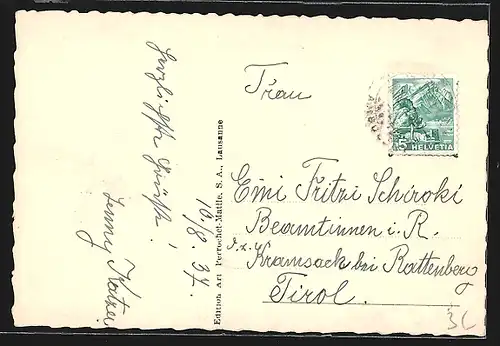 Herzlichste Grüße!
10/8. 37.
Edition Art Perrochet-Matile, S. A., Lausanne
Frau
Emi Fritzi Schiroki
Beamtinnen i. R.
d. z. Kramsach bei Rattenberg
Tirol.
HELVETIA
5
3L